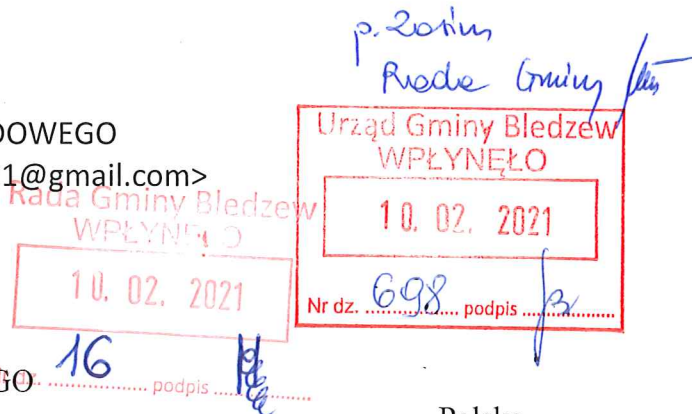 Rada Gminy
DOWEGO
1@gmail.com>
Urząd Gminy Bledzew
WPŁYNĘŁO
10. 02. 2021
Nr dz. 698 podpis
Rada Gminy Bledzew
WPŁYNĘŁO
10. 02. 2021
dz. 16 podpis
GO
Polska